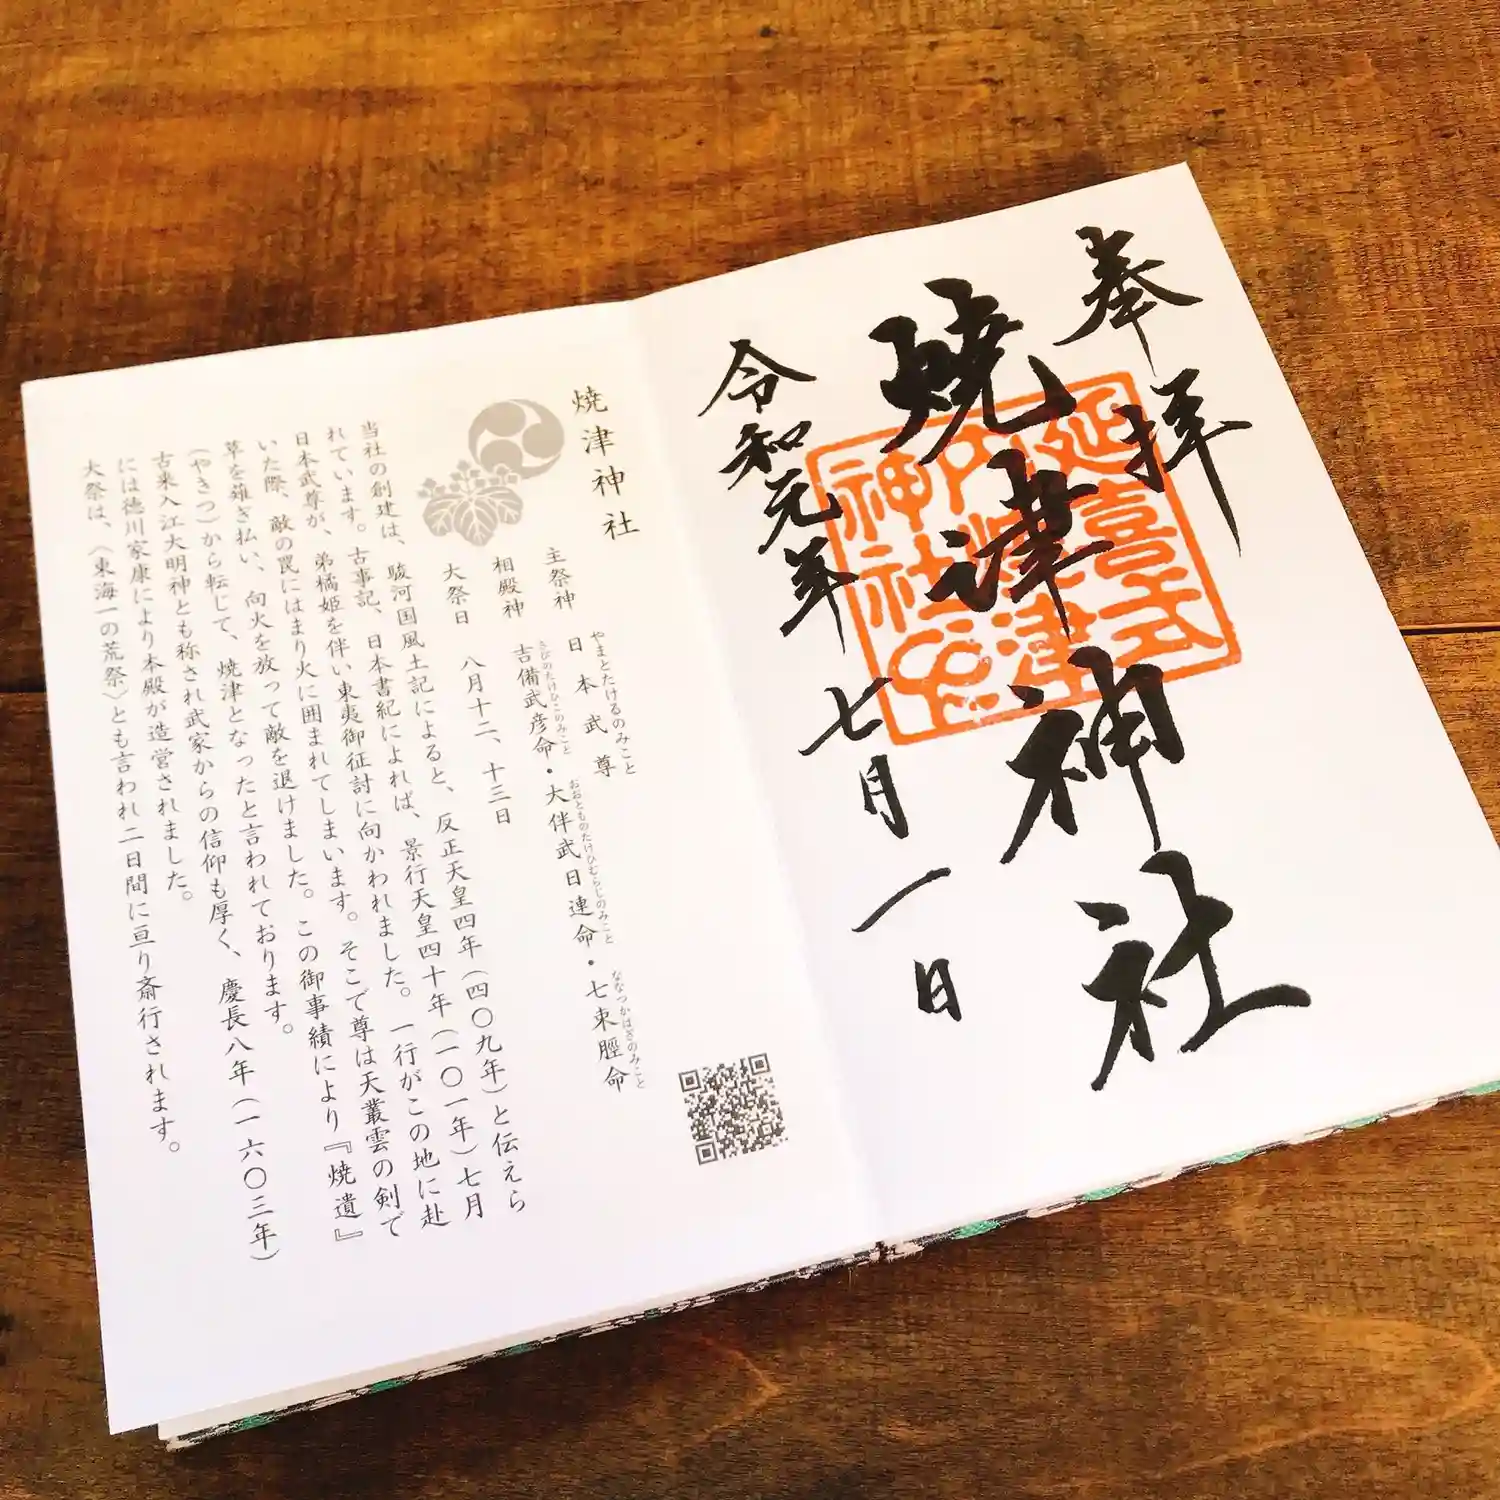 奉拝
焼津神社
延喜式
内焼津
神社
令和元年七月一日
焼津神社
主祭神 日本武尊
やまとたけるのみこと
相殿神 吉備武彦命・大伴武日連命・七束脛命
きびのたけひこのみこと おおとものたけひむらじのみこと ななつかはぎのみこと
大祭日 八月十二、十三日
当社の創建は、駿河国風土記によると、反正天皇四年(四〇九年)と伝えら
れています。古事記、日本書紀によれば、景行天皇四十年(一〇一年)七月
日本武尊が、弟橘姫を伴い東夷御征討に向かわれました。一行がこの地に赴
いた際、敵の罠にはまり火に囲まれてしまいます。そこで尊は天叢雲の剣で
草を薙ぎ払い、向火を放って敵を退けました。この御事績により『焼遺』
(やきつ)から転じて、焼津となったと言われております。
古来入江大明神とも称され武家からの信仰も厚く、慶長八年(一六〇三年)
には徳川家康により本殿が造営されました。
大祭は、〈東海一の荒祭〉とも言われ二日間に亘り斎行されます。